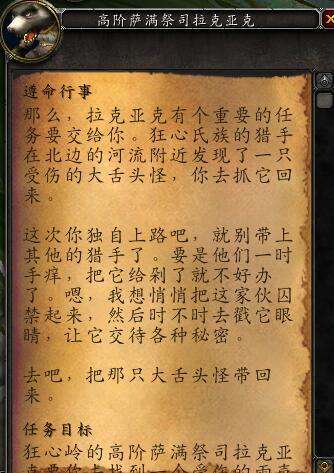 高阶萨满祭司拉克亚克
遵命行事
那么，拉克亚克有个重要的任
务要交给你。狂心氏族的猎手
在北边的河流附近发现了一只
受伤的大舌头怪，你去抓它回
来。
这次你独自上路吧，就别带上
其他的猎手了。要是他们一时
手痒，把它给剁了就不好办
了。嗯，我想悄悄把这家伙囚
禁起来，然后时不时去戳它眼
睛，让它交待各种秘密。
去吧，把那只大舌头怪带回
来。
任务目标
狂心岭的高阶萨满祭司拉克亚